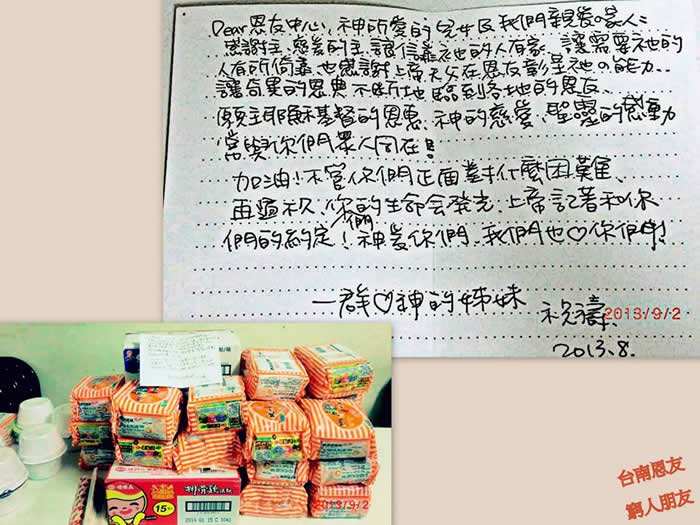 Dear 恩友中心、神所愛的兒女及我們親愛的家人:
感謝主、慈愛的主讓信靠祂的人有家、讓需要祂的
人有所倚靠、也感謝上帝天父在恩友彰呈祂の能力、
讓奇異的恩典不斷地臨到各地的恩友、
願主耶穌基督的恩惠、神的慈愛、聖靈的感動
常與你們眾人同在!!
加油!不管你們正面對什麼困難、
再過不久、你們的生命会發光、上帝記著和你
們的約定!神愛你們、我們也♡你們!
一群♡神的姊妹 祝禱
2013/9/2
2013.8.
排骨雞
15
2013/9/2
台南恩友
窮人朋友